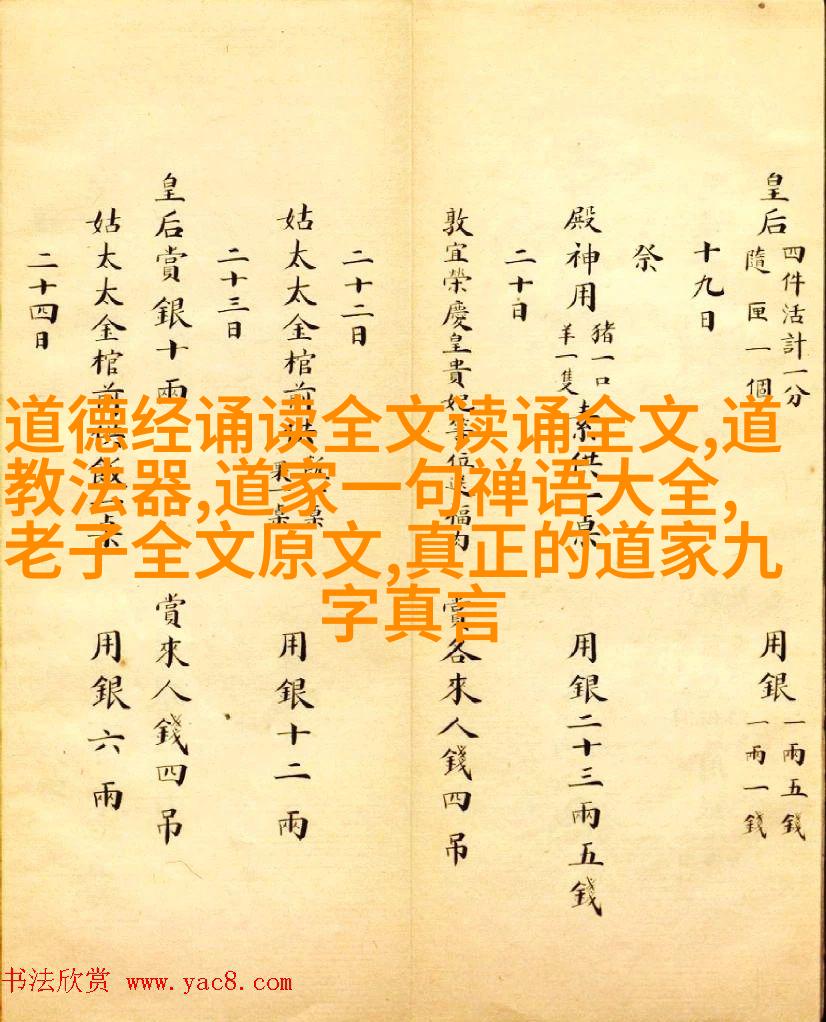 皇后 四件活計一分 隨匣一個 用銀 一兩五錢 一兩一錢
十九日
祭
殿神用 豬一口 羊一隻 素供一桌 用銀二十三兩五錢
二十日
敦宜榮慶皇貴妃等位送福肉 賞各來人錢四吊
二十二日
姑太太金棺前供 用銀十二兩
二十三日
皇后賞銀十兩 賞來人錢四吊
姑太太金棺前供飯一桌 用銀六兩
二十四日
道德经诵读全文读诵全文,道
教法器,道家一句禅语大全,
老子全文原文,真正的道家九
字真言
书法欣赏 www.yac8.com